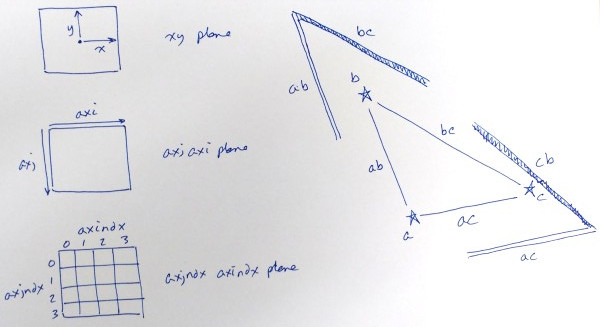 y
x
xy plane
axi
axj
axj axi plane
axindx
0 1 2 3
0
1
2
3
axjndx
axjndx axindx plane
bc
ab
b
bc
ab
a
ac
c
cb
ac